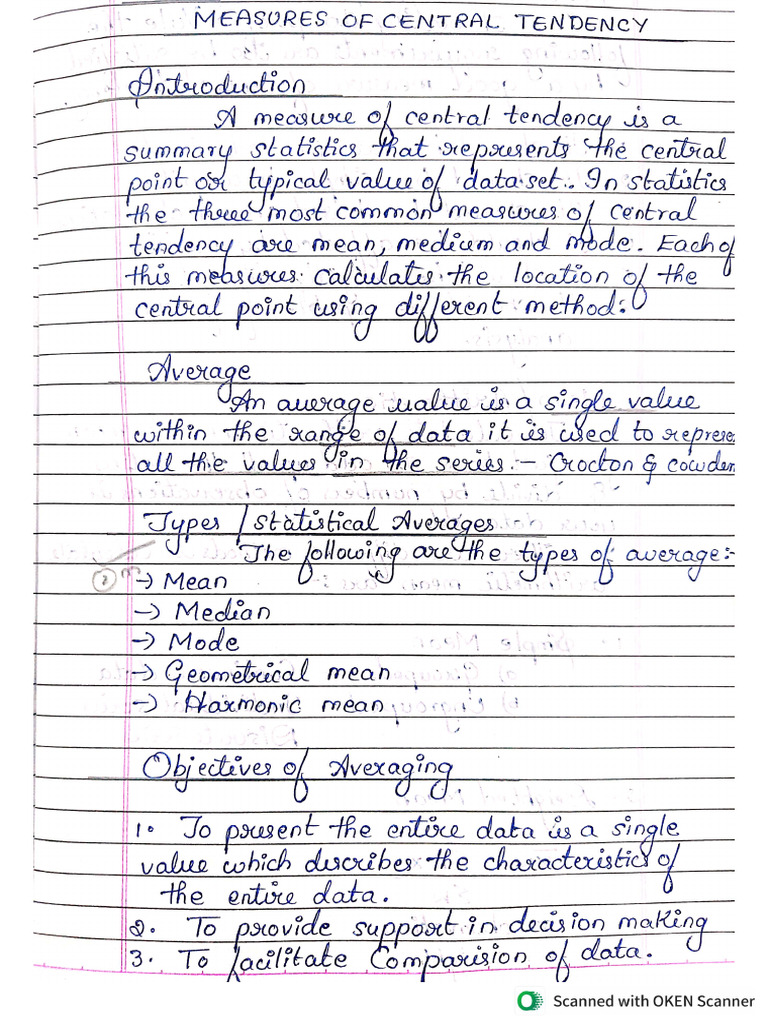 MEASURES OF CENTRAL TENDENCY
Introduction
A measure of central tendency is a
summary statistics that represents the central
point or typical value of data set. In statistics
the three most common measures of central
tendency are mean, medium and mode. Each of
this measures calculates the location of the
central point using different method:
Average
An average value is a single value
within the range of data it is used to represe
all the values in the series. - Crocton & cowden
Types / Statistical Averages
The following are the types of average:-
→ Mean
→ Median
→ Mode
→ Geometrical mean
→ Harmonic mean
Objectives of Averaging
1. To present the entire data is a single
value which describes the characteristics of
the entire data.
2. To provide support in decision making
3. To facilitate Comparision of data.
Scanned with OKEN Scanner